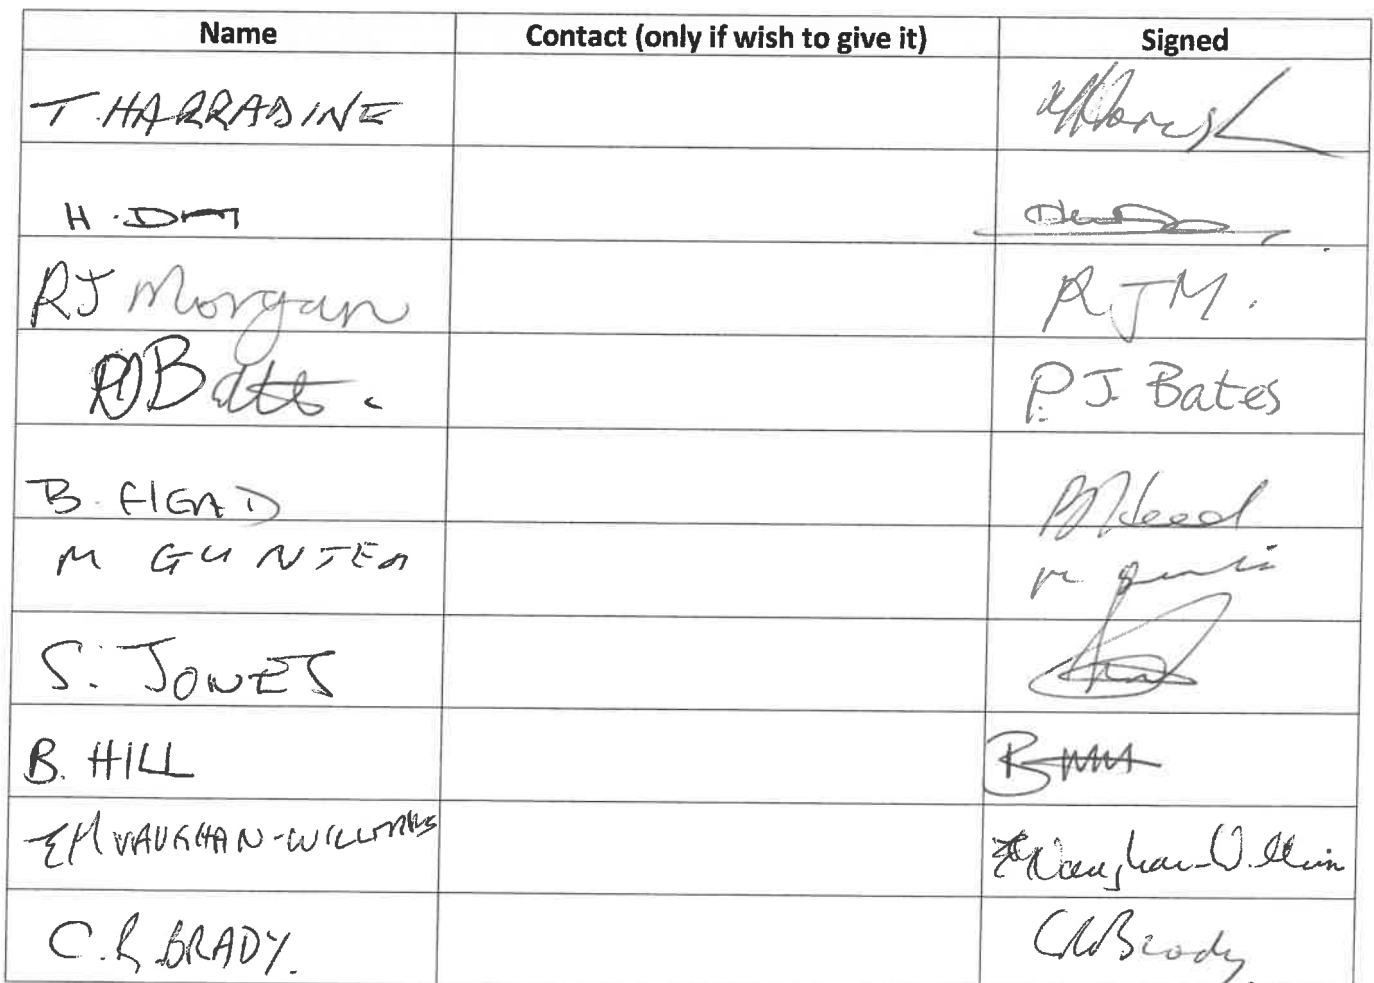 Name Contact (only if wish to give it) Signed
T. HARRADINE
H.
RJ Morgan RJM.
P. J. Bates
B. HEAD B Head
M GUNTER M
S. JONES
B. HILL B
EM VAUGHAN-WILLIAMS EM Vaughan-Williams
C. R. BRADY. CR Brady